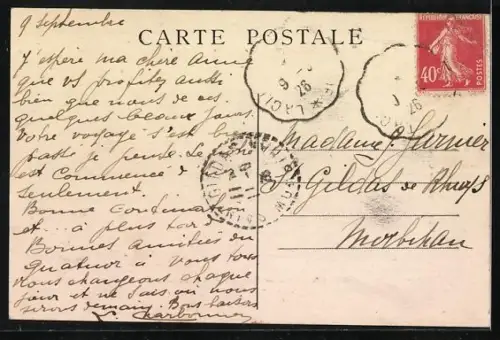 9 Septembre
CARTE POSTALE
J'espère ma chère Anne
que vs profitez aussi
bien que nous de ces
quelques beaux jours.
Votre voyage s'est
passé je pense. Le
est commencé
seulement...
Bonne continuation
et... à plus tard
Bonnes amitiés du
quatuor à vous tous
Nous changeons chaque
jour et ne sais où nous
serons demain. Bons baisers
Charbonnier
REPUBLIQUE FRANÇAISE
40c
POSTES
Madame J. Garnier
St Gildas de Rhuys
Morbihan